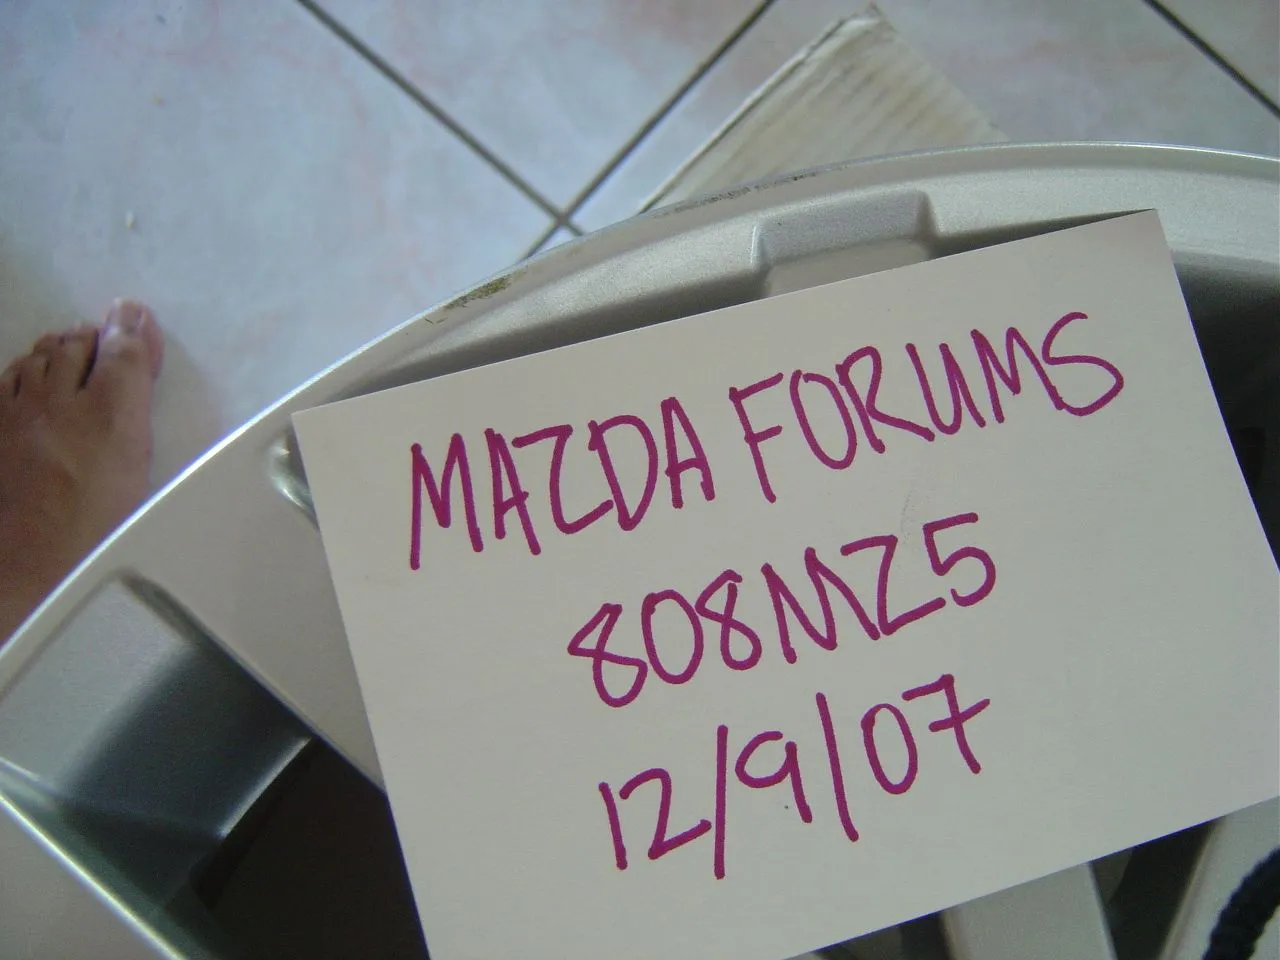 MAZDA FORUMS
808MZ5
12/9/07